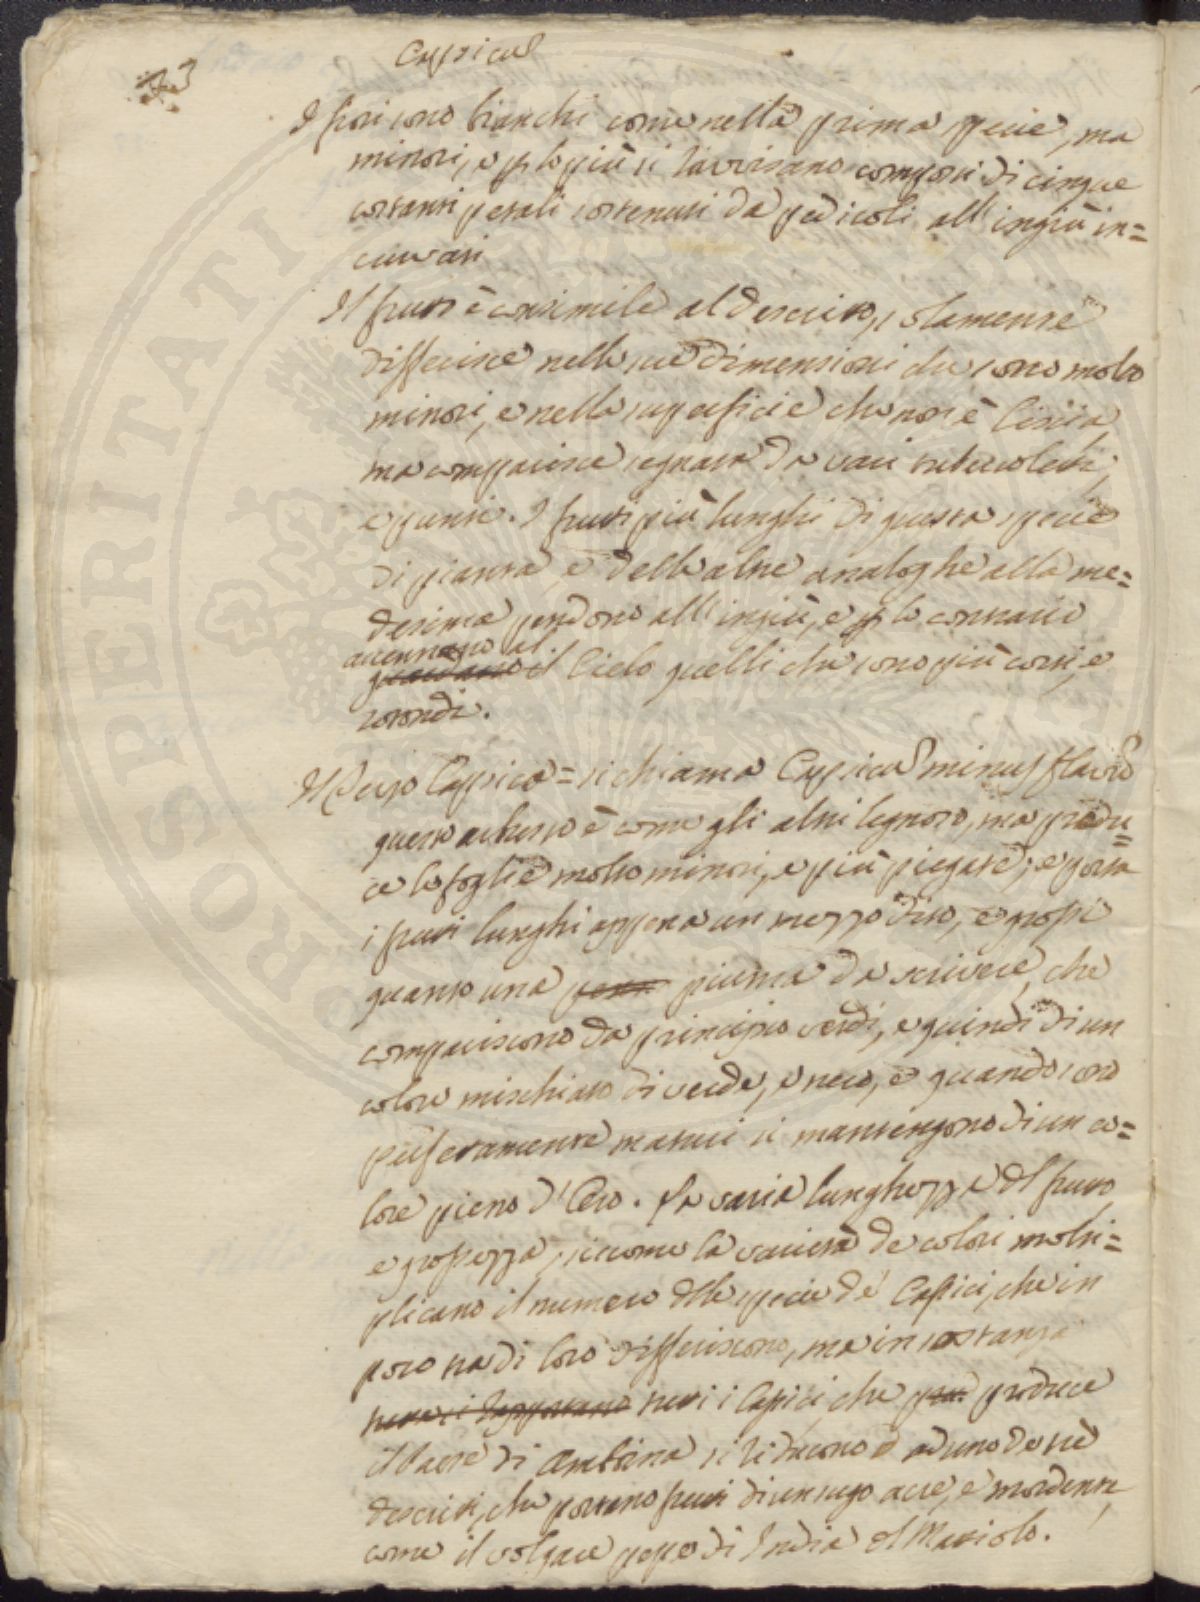 Capsicus
I fiori sono bianchi come nella prima specie, ma
minori, e p lo più si ravvisano composti di cinque
costanti petali sostenuti da pedicoli all'ingiù in=
curvati
Il frutto è consimile al descritto, solamente
differisce nelle sue dimensioni che sono molto
minori, e nella superficie che non è liscia
ma comparisce segnata da vari tubercoletti,
e punte. I frutti più lunghi di questa specie
di pianta, e delle altre analoghe alla me=
desima pendono all'ingiù, e p lo contrario
accennano al
guardano il Cielo quelli che sono più corti, e
rotondi.
Il terzo Capsico = si chiama Capsicus minus flavus
questo arbusto è come gli altri legnoso, ma produ=
ce le foglie molto minori, e più piegate; e porta
i frutti lunghi appena un mezzo dito, e grossi
quanto una penna piuma da scrivere, che
compariscono da principio verdi, e quindi di un
colore mischiato di verde, e nero, e quando sono
perfettamente maturi si mantengono di un co=
lore pieno d'Oro. La varia lunghezza del frutto
e grossezza, siccome la varietà de colori molti=
plicano il numero delle specie de' Capsici, che in
poco tra di loro differiscono, ma in sostanza
tutti i Capsici che produce
il Paese di Amboina si riducono ad uno de tre
descritti, che portano frutti di un sugo acre, e mordente,
come il volgare pepe di India del Mattiolo.
PROSPERITATI